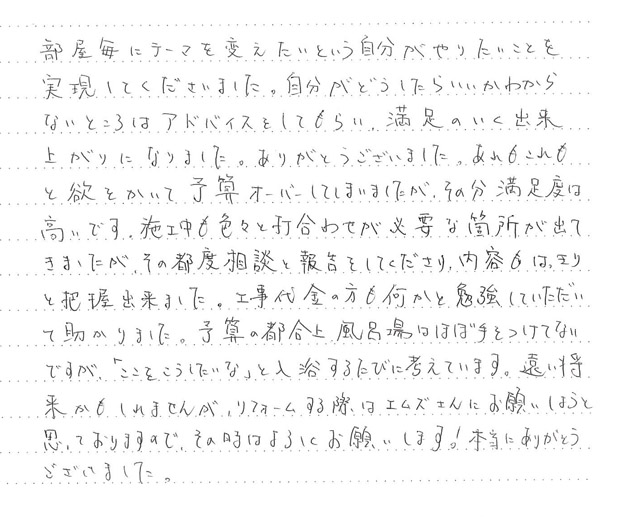 部屋毎にテーマを変えたいという自分がやりたいことを
実現してくださいました。自分がどうしたらいいかわから
ないところはアドバイスをしてもらい、満足のいく出来
上がりになりました。ありがとうございました。あれもこれも
と欲をかいて予算オーバーしてしまいましたが、その分満足度は
高いです。施工中も色々と打合わせが必要な箇所が出て
きましたが、その都度相談と報告をしてくださり、内容もはっきり
と把握出来ました。工事代金の方も何かと勉強していただい
て助かりました。予算の都合上、風呂場はほぼ手をつけてない
ですが、「ここをこうしたいな」と入浴するたびに考えています。遠い将
来かもしれませんが、リフォームする際はエムズさんにお願いしようと
思っておりますので、その時はよろしくお願いします!本当にありがとう
ございました。